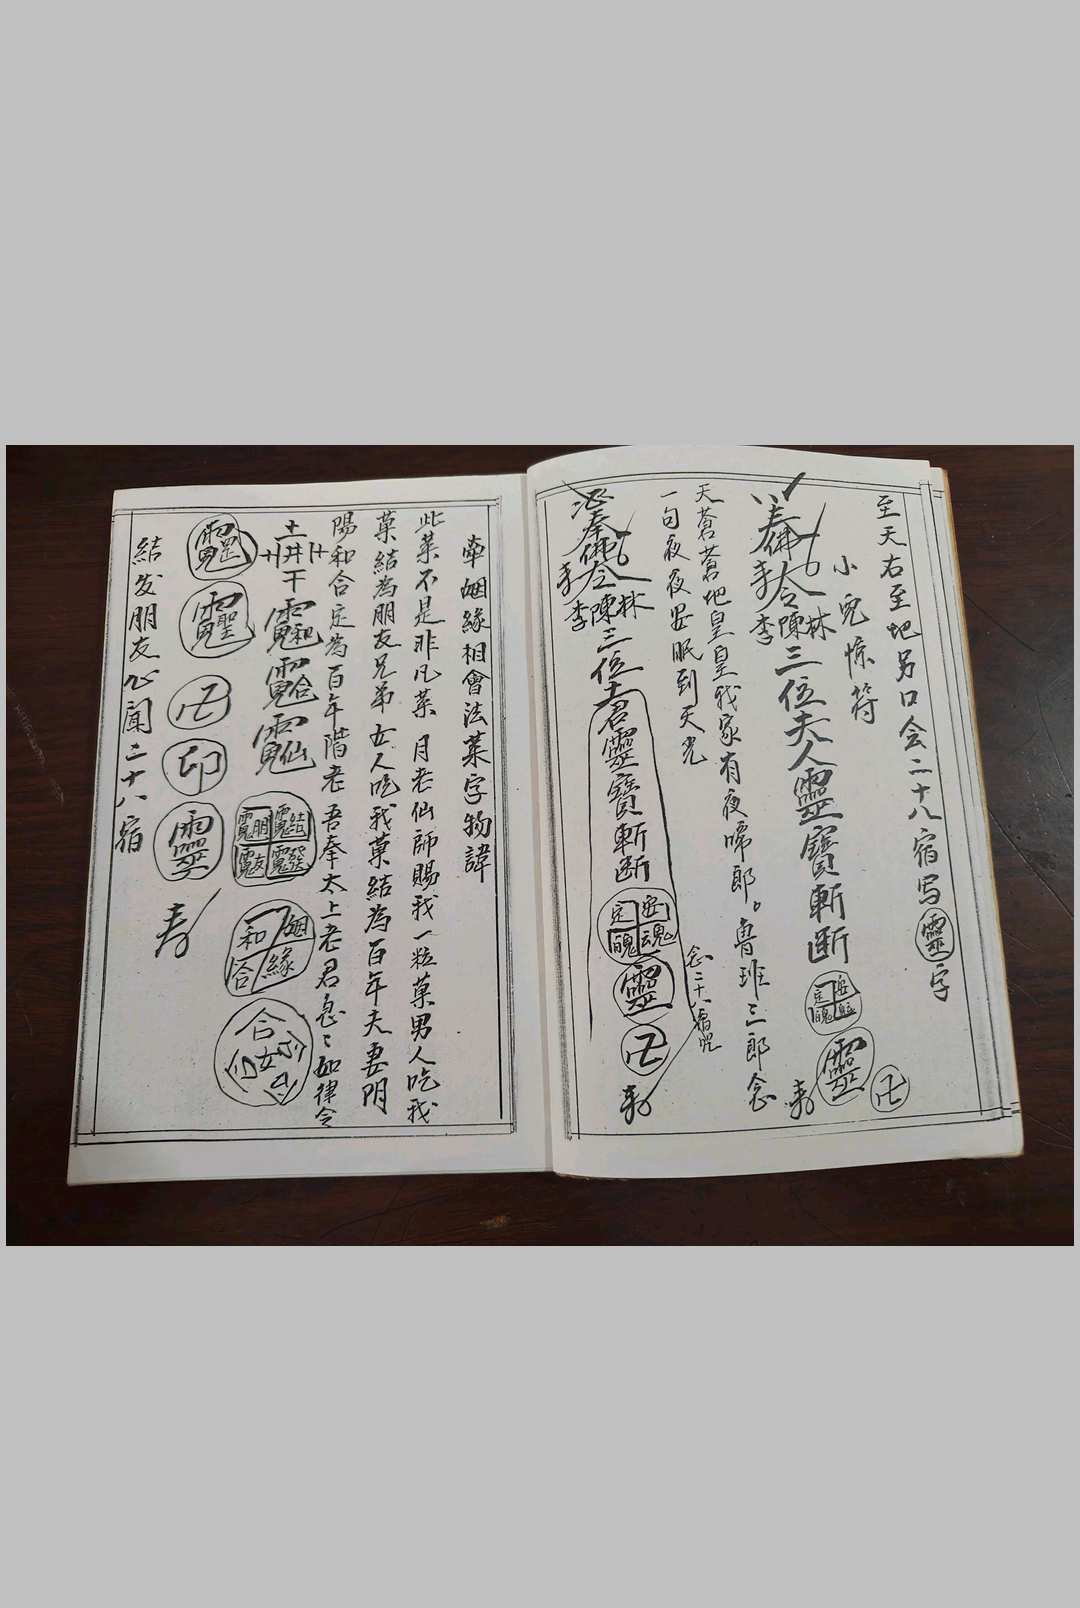 至天右至地另口会二十八宿写靈字
小兒惊符
佛令
李陳林三位夫人靈寶斬断
安魂定魄
靈
卍
天蒼蒼地皇皇我家有夜啼郎。魯班三郎念
一句夜夜安眠到天光
念二十八宿咒
奉佛令
李陳林三位夫君靈寶斬断
安魂定魄
靈
卍
牵姻緣相會法菓字物諱
此菓不是非凡菓 月老仙師賜我一粒菓男人吃我
菓結為朋友兄弟 女人吃我菓結為百年夫妻阴
陽和合定為百年階老 吾奉太上老君急急如律令
土井干
姻緣和合
合
卍
印
靈
結发朋友心闻二十八宿